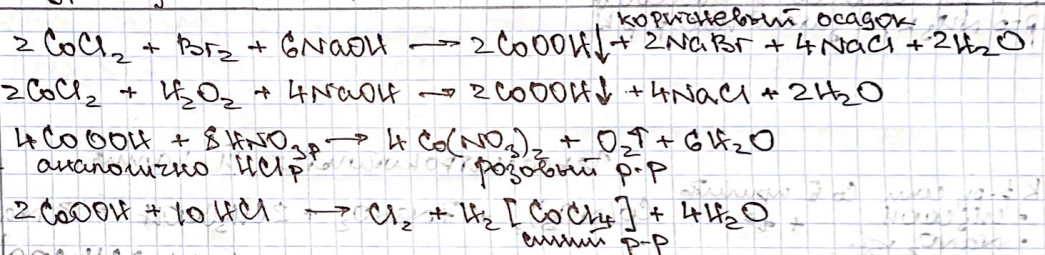 коричневый осадок
2CoCl₂ + Br₂ + 6NaOH ⟶ 2CoOOH↓ + 2NaBr + 4NaCl + 2H₂O
2CoCl₂ + H₂O₂ + 4NaOH → 2CoOOH↓ + 4NaCl + 2H₂O
4CoOOH + 8HNO₃р ⟶ 4Co(NO₃)₂ + O₂↑ + 6H₂O
аналогично HClр розовый р-р
2CoOOH + 10HCl ⟶ Cl₂ + H₂[CoCl₄] + 4H₂O
синий р-р